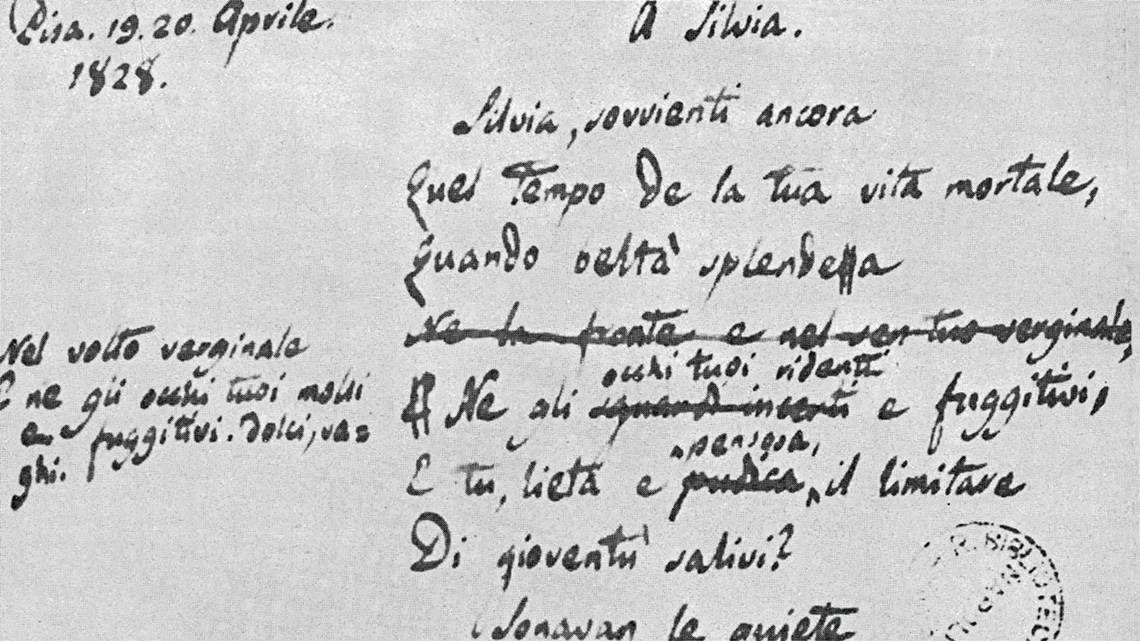 Pisa. 19. 20. Aprile.
1828.
A Silvia.
Silvia, sovvienti ancora
Quel tempo de la tua vita mortale,
Quando beltà splendea
Ne la fronte e nel sen tuo verginale,
occhi tuoi ridenti
Ne gli sguardi incerti e fuggitivi,
pensosa,
E tu, lieta e pudica, il limitare
Di gioventù salivi?
Sonavan le quiete
Nel volto verginale
E ne gli occhi tuoi molli
e fuggitivi. dolci, va=
ghi.
R. BIBLIOTEC